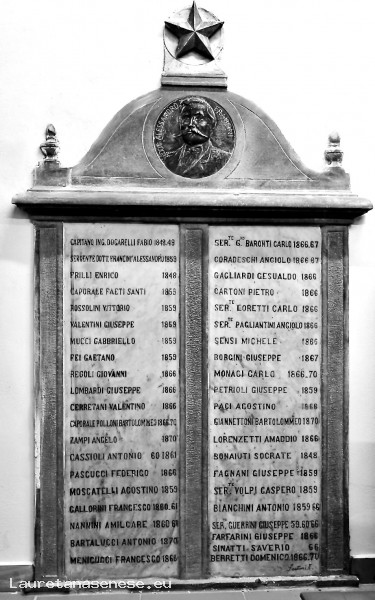 ALESSANDRO FRANCINI
CAPITANO ING. DOGARELLI FABIO 1848.49
SERGENTE DOTT. FRANCINI ALESSANDRO 1859
FRILLI ENRICO 1848
CAPORALE FAETI SANTI 1859
ROSSOLINI VITTORIO 1859
VALENTINI GIUSEPPE 1859
MUCCI GABBRIELLO 1859
FEI GAETANO 1859
REGOLI GIOVANNI 1866
LOMBARDI GIUSEPPE 1866
CERRETANI VALENTINO 1866
CAPORALE POLLONI BARTOLOMMEO 1866.70
ZAMPI ANGELO 1870
CASSIOLI ANTONIO 60 1861
PASCUCCI FEDERIGO 1866
MOSCATELLI AGOSTINO 1859
GALLORINI FRANCESCO 1860.61
NANNINI AMILCARE 1860 61
BARTALUCCI ANTONIO 1870
MENICUCCI FRANCESCO 1866
SER.TE G. BARONTI CARLO 1866.67
CORADESCHI ANGIOLO 1866 67
GAGLIARDI GESUALDO 1866
CARTONI PIETRO 1866
SER.TE LORETTI CARLO 1866
SER.TE PAGLIANTINI ANGIOLO 1866
SENSI MICHELE 1866
BORGINI GIUSEPPE 1867
MONACI CARLO 1866.70
PETRIOLI GIUSEPPE 1859
PACI AGOSTINO 1866
GIANNETTONI BARTOLOMMEO 1870
LORENZETTI AMADDIO 1866
BONAIUTI SOCRATE 1848
FAGNANI GIUSEPPE 1859
SER.TE VOLPI GASPERO 1859
BIANCHINI ANTONIO 1859 66
SER. GUERRINI GIUSEPPE 59.60 66
FARFARINI GIUSEPPE 1866
SINATTI SAVERIO 66
BERRETTI DOMENICO 1866.70
www.lauretanasenese.it